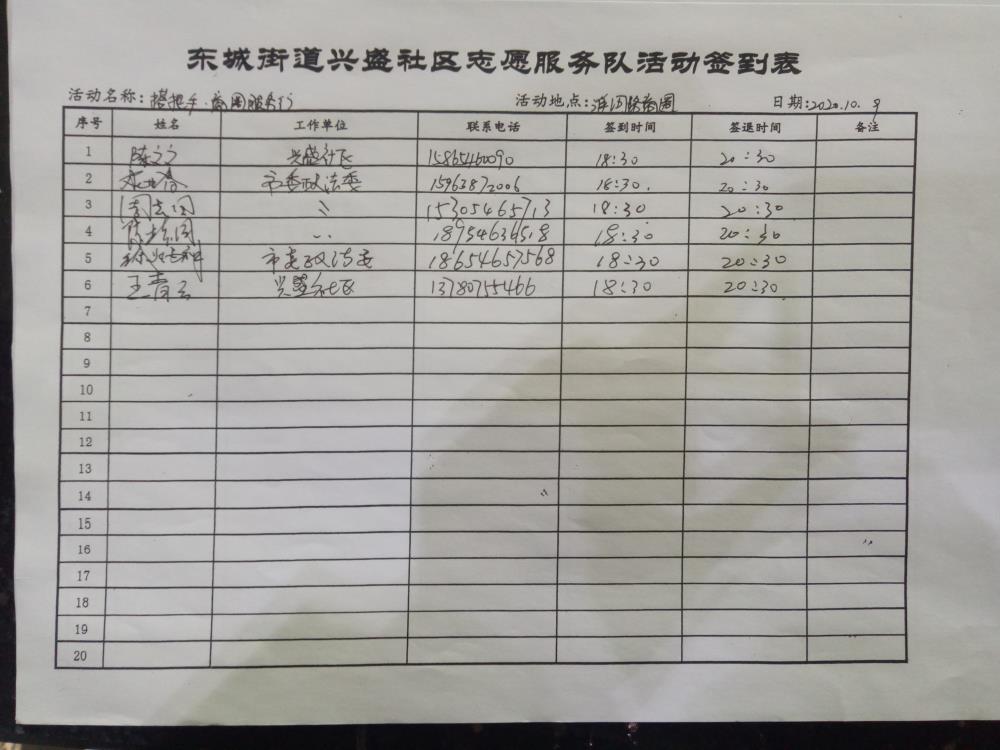 东城街道兴盛社区志愿服务队活动签到表
活动名称：搭把手·商圈服务行 活动地点：商圈 日期：2020.10.9
序号 姓名 工作单位 联系电话 签到时间 签退时间 备注
1 陈文文 兴盛社区 15865460090 18:30 20:30
2 市委政法委 15963872006 18:30. 20:30
3 〃 15305465713 18:30 20:30
4 〃 18954636518 18:30 20:30
5 市委政法委 18654657568 18:30 20:30
6 王青云 兴盛社区 13780755466 18:30 20:30
7
8
9
10
11
12
13
14
15
16
17
18
19
20